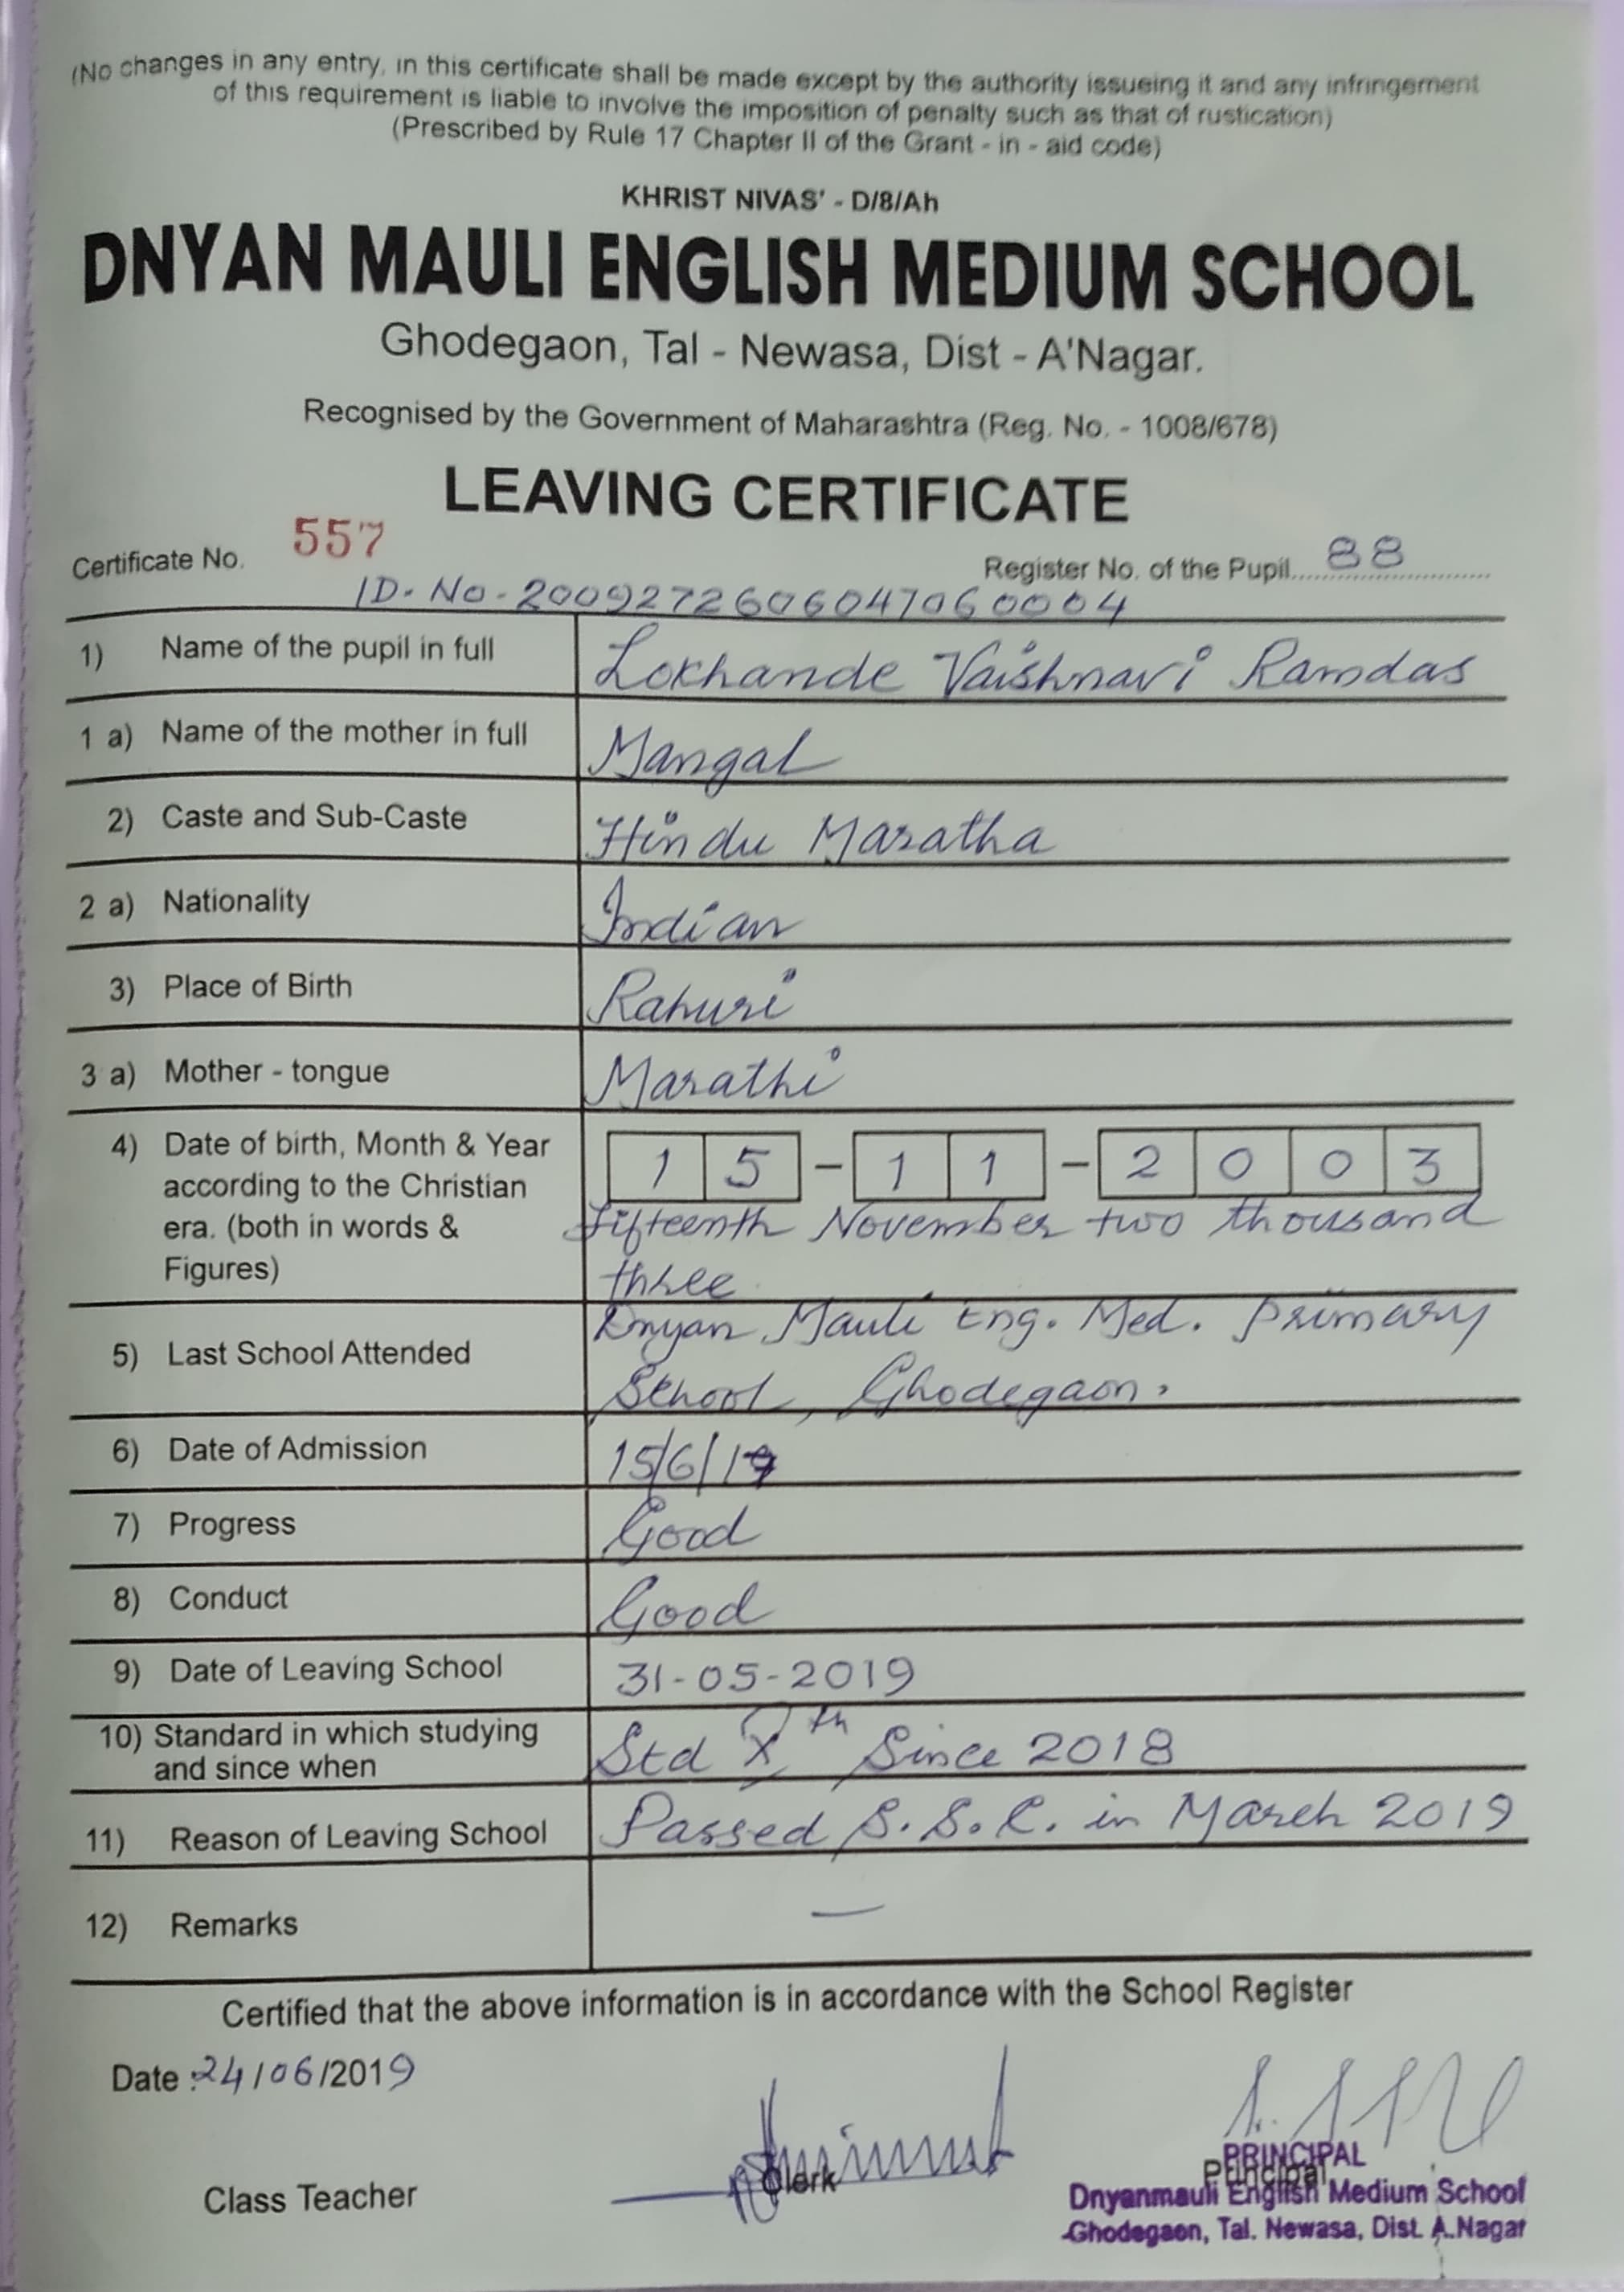 (No changes in any entry, in this certificate shall be made except by the authority issueing it and any infringement
of this requirement is liable to involve the imposition of penalty such as that of rustication)
(Prescribed by Rule 17 Chapter II of the Grant - in - aid code)
KHRIST NIVAS' - D/8/Ah
DNYAN MAULI ENGLISH MEDIUM SCHOOL
Ghodegaon, Tal - Newasa, Dist - A'Nagar.
Recognised by the Government of Maharashtra (Reg. No. - 1008/678)
LEAVING CERTIFICATE
Certificate No. 557 Register No. of the Pupil 88
ID. No - 2009272606047060004
1) Name of the pupil in full Lokhande Vaishnavi Ramdas
1 a) Name of the mother in full Mangal
2) Caste and Sub-Caste Hindu Maratha
2 a) Nationality Indian
3) Place of Birth Rahuri
3 a) Mother - tongue Marathi
4) Date of birth, Month & Year 15 - 11 - 2003
according to the Christian
era. (both in words & Fifteenth November two thousand
Figures) three
5) Last School Attended Dnyan Mauli Eng. Med. Primary
School, Ghodegaon.
6) Date of Admission
7) Progress Good
8) Conduct Good
9) Date of Leaving School 31-05-2019
10) Standard in which studying
and since when Std Xth Since 2018
11) Reason of Leaving School Passed S.S.C. in March 2019
12) Remarks —
Certified that the above information is in accordance with the School Register
Date : 24/06/2019
Class Teacher Clerk Principal
PRINCIPAL
Dnyanmauli English Medium School
Ghodegaon, Tal. Newasa, Dist. A.Nagar